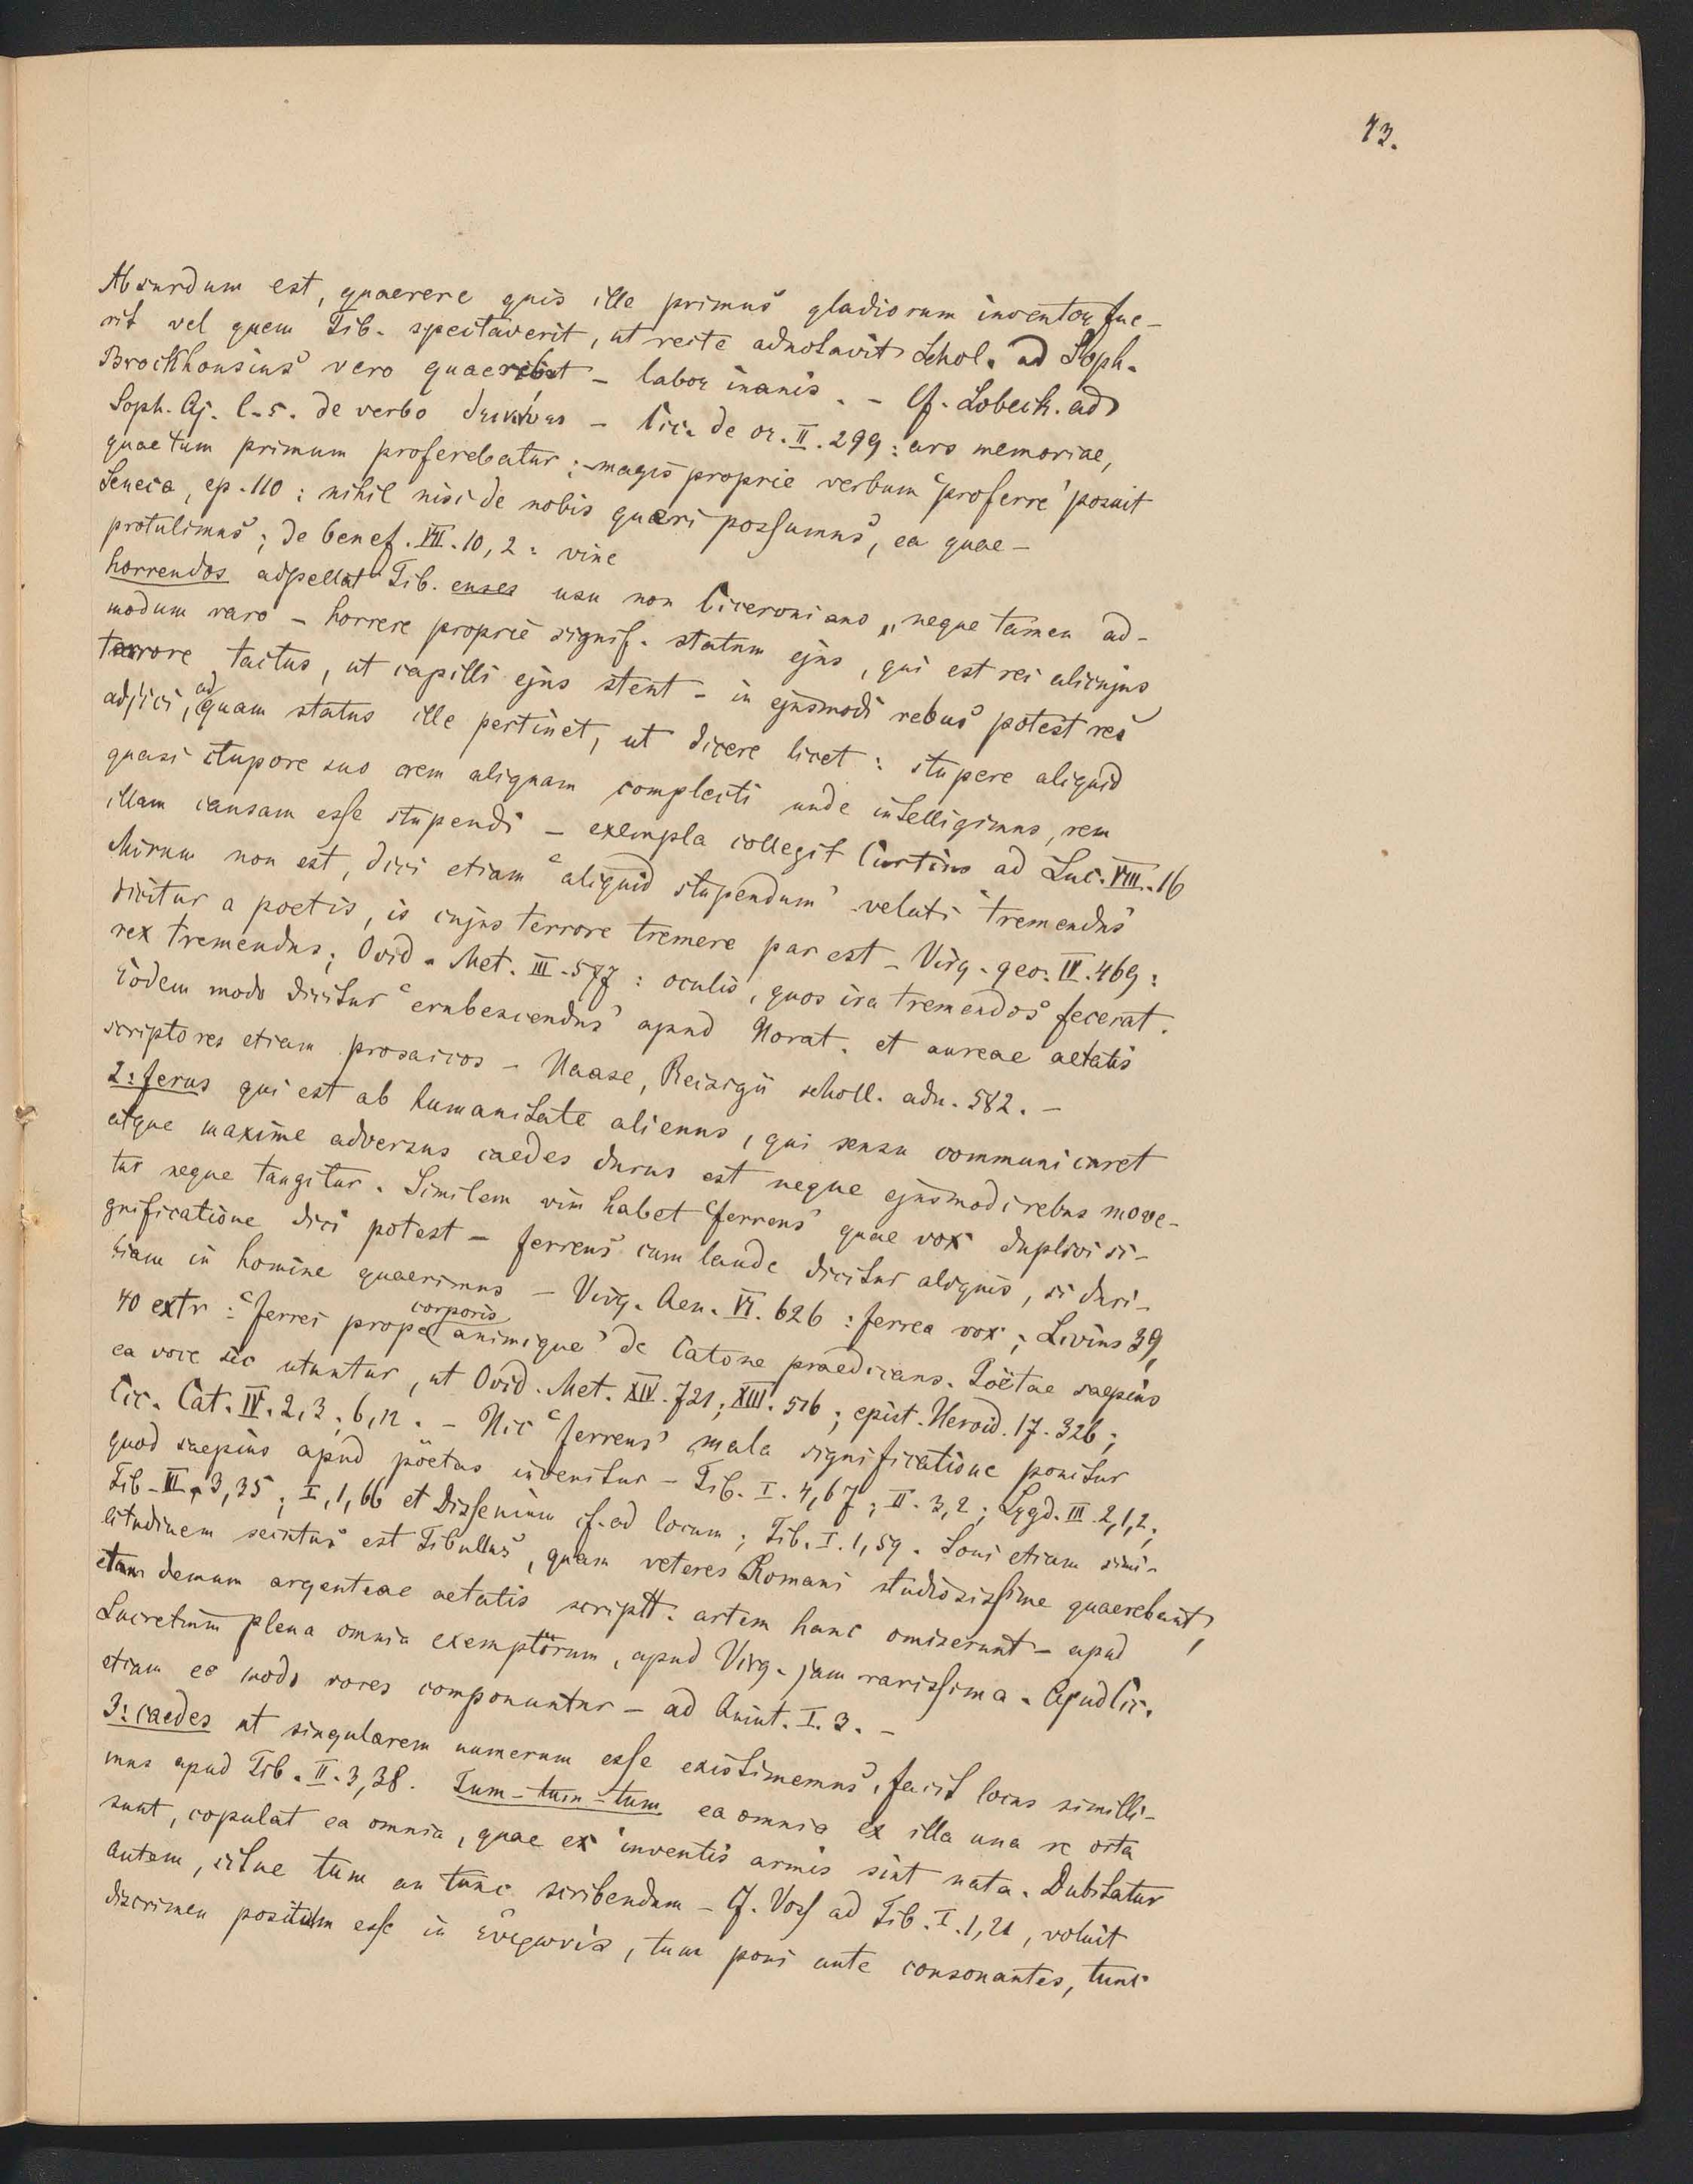 43.
Absurdum est, quaerere quis ille primus gladiorum inventor fue-
rit vel quem Tib. spectaverit, ut recte adnotavit Schol. ad Soph.
Brockhousius vero quaerebat – labor inanis. – Cf. Lobeck. ad
Soph. Aj. l. 5. de verbo – Cic. de or. II. 299: ars memoriae,
quae tum primum proferebatur; – magis proprie verbum 'proferre' posuit
Seneca, ep. 110: nihil nisi de nobis queri possumus, ea quae –
protulimus; de benef. VII. 10, 2: vine
horrendos adpellat Tib. enses usu non Ciceroniano, neque tamen ad-
modum raro – horrere proprie signif. statum ejus, qui est rei alicujus
terrore tactus, ut capilli ejus stent – in ejusmodi rebus potest res
adjici, ad quam status ille pertinet, ut dicere licet: stupere aliquid
quasi stupore suo rem aliquam complecti unde intelligimus, rem
illam causam esse stupendi – exempla collegit Cortius ad Luc. VIII. 16
Mirum non est, dici etiam 'aliquid stupendum' veluti 'tremendus'
dicitur a poetis, is cujus terrore tremere par est – Virg. geo. IV. 469:
rex tremendus; Ovid. Met. III. 577: oculis, quos ira tremendos fecerat.
Eodem modo dicitur 'erubescendus' apud Horat. et aureae aetatis
scriptores etiam prosaicos – Haase, Reisigii scholl. adn. 582. –
2: ferus qui est ab humanitate alienus, qui sensu communi caret
atque maxime adversus caedes durus est neque ejusmodi rebus move-
tur neque tangitur. Similem vim habet 'ferreus' quae vox duplici si-
gnificatione dici potest – ferreus cum laude dicitur aliquis, si duri-
tiam in homine quaerimus – Virg. Aen. VI. 626: ferrea vox; Livius 39,
40 extr: 'ferrei prope corporis animique' de Catone praedicans. Poëtae saepius
ea voce sic utuntur, ut Ovid. Met. XIV. 721; XIII. 516; epist. Heroid. 17. 326;
Cic. Cat. IV. 2, 3; 6, 12. – Hic 'ferreus' mala significatione ponitur
quod saepius apud poëtas invenitur – Tib. I. 4, 67; II. 3, 2; Lygd. III. 2, 1, 2;
Tib. III. 3, 35; I, 1, 66 et Dissenium cf. ad locum; Tib. I. 1, 59. Soni etiam simi-
litudinem secutus est Tibullus, quam veteres Romani studiosissime quaerebant,
demum argenteae aetatis scriptt. artem hanc omiserunt – apud
Lucretium plena omnia exemplorum, apud Virg. jam rarissima. Apud Cic.
etiam eo modo voces componuntur – ad Quint. I. 3. –
3: caedes ut singularem numerum esse existimemus, facit locus simili-
mus apud Tib. II. 3, 38. Tum – tum – tum ea omnia ex illa una re orta
sunt, copulat ea omnia, quae ex inventis armis sint nata. Dubitatur
autem, sitne tum an tunc scribendum – Cf. Voss ad Tib. I. 1, 21, voluit
discrimen positum esse in εὐφωνία, tum poni ante consonantes, tunc